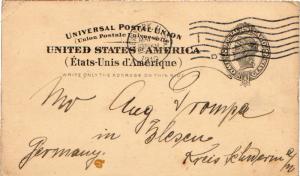 UNIVERSAL POSTAL UNION
(Union Postale Universelle)
UNITED STATES OF AMERICA
(États-Unis d'Amérique)
WRITE ONLY THE ADDRESS ON THIS SIDE
Aug Trompa
in Blesen
Germany. Kreis Schwerin a/W